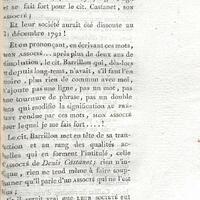 et se fait fort pour le cit. Castanet, son
ASSOCIÉ;
Et leur société aurait été dissoute au
21 décembre 1791!
Et en prononçant, en écrivant ces mots,
MON ASSOCIÉ.... après plus de deux ans de
dissolution, le cit. Barrillon qui, dès-lors
et depuis long-tems, n'avait, s'il faut l'en
croire, plus rien de commun avec moi,
n'ajoute pas une ligne, pas un mot, pas
une tournure de phrase, pas un double
sens qui modifie la signification AU PRÉ-
SENT rendue par ces mots, MON ASSOCIÉ
pour lequel je me fais fort....!
Le cit. Barrillon met en tête de sa tran-
saction et au rang des qualités ac-
tuelles qui en forment l'intitulé, celle
d'ASSOCIÉ de Denis Castanet; rien n'in-
dique, rien ne tend même à faire soup-
çonner qu'il parle d'un ASSOCIÉ qui ne l'est
plus;
Et il serait vrai que LEUR SOCIÉTÉ eut